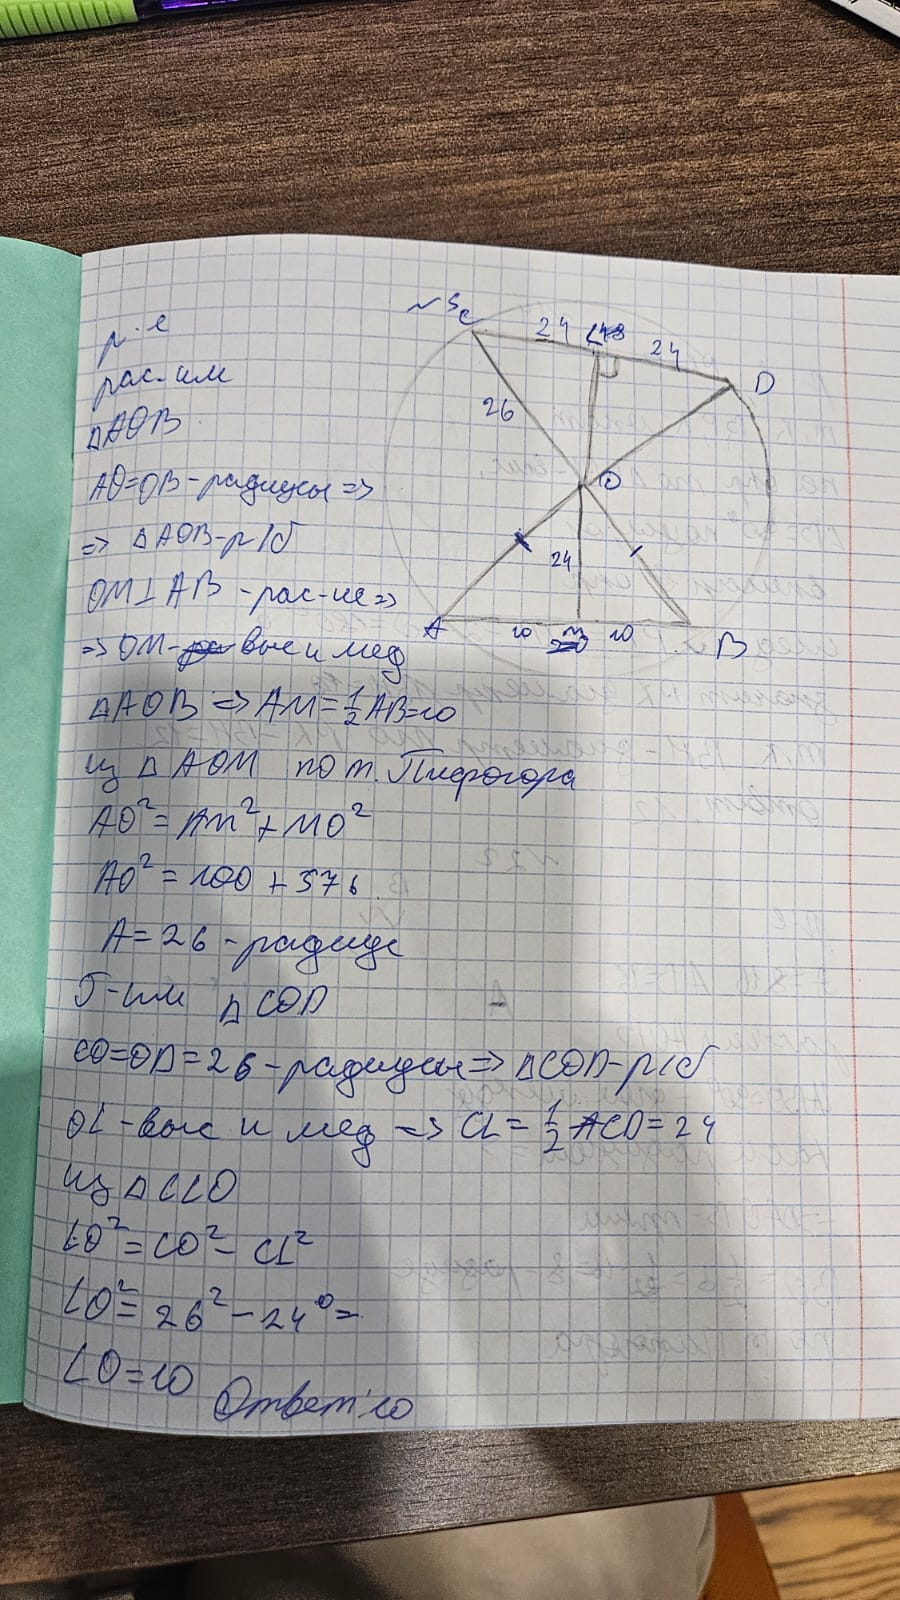 ~5
C 24 L 48 24 D
26
O
24
A 10 M 20 10 B
р-е
рас-им
△AOB
AO=OB-радиусы =>
=> △AOB-р/б
OM⊥AB -рас-ие =>
=> OM- выс и мед
△AOB => AM=1/2 AB=10
из △AOM по т. Пифогора
AO²=AM²+MO²
AO²=100+576
A=26-радиус
Г-им △COD
CO=OD=26-радиусы=> △COD-р/б
OL-выс и мед => CL=1/2 CD=24
из △CLO
LO²=CO²-CL²
LO²=26²-24²=
LO=10
Ответ:10